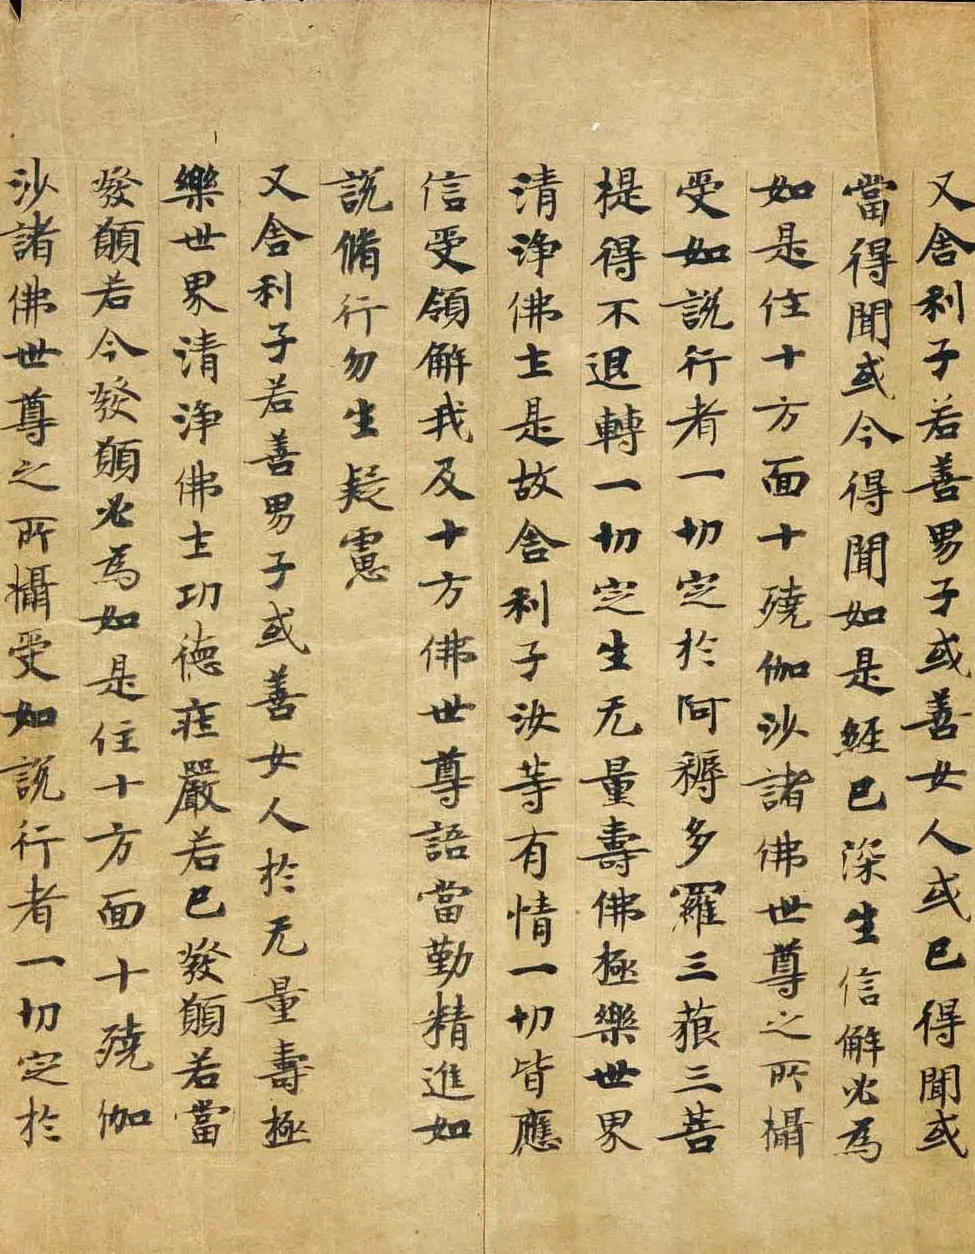 又舍利子若善男子或善女人或已得聞或
當得聞或今得聞如是經已深生信解必為
如是住十方面十殑伽沙諸佛世尊之所攝
受如說行者一切定於阿耨多羅三藐三菩
提得不退轉一切定生无量壽佛極樂世界
清淨佛土是故舍利子汝等有情一切皆應
信受領解我及十方佛世尊語當勤精進如
說脩行勿生疑慮
又舍利子若善男子或善女人於无量壽極
樂世界清淨佛土功德莊嚴若已發願若當
發願若今發願必為如是住十方面十殑伽
沙諸佛世尊之所攝受如說行者一切定於